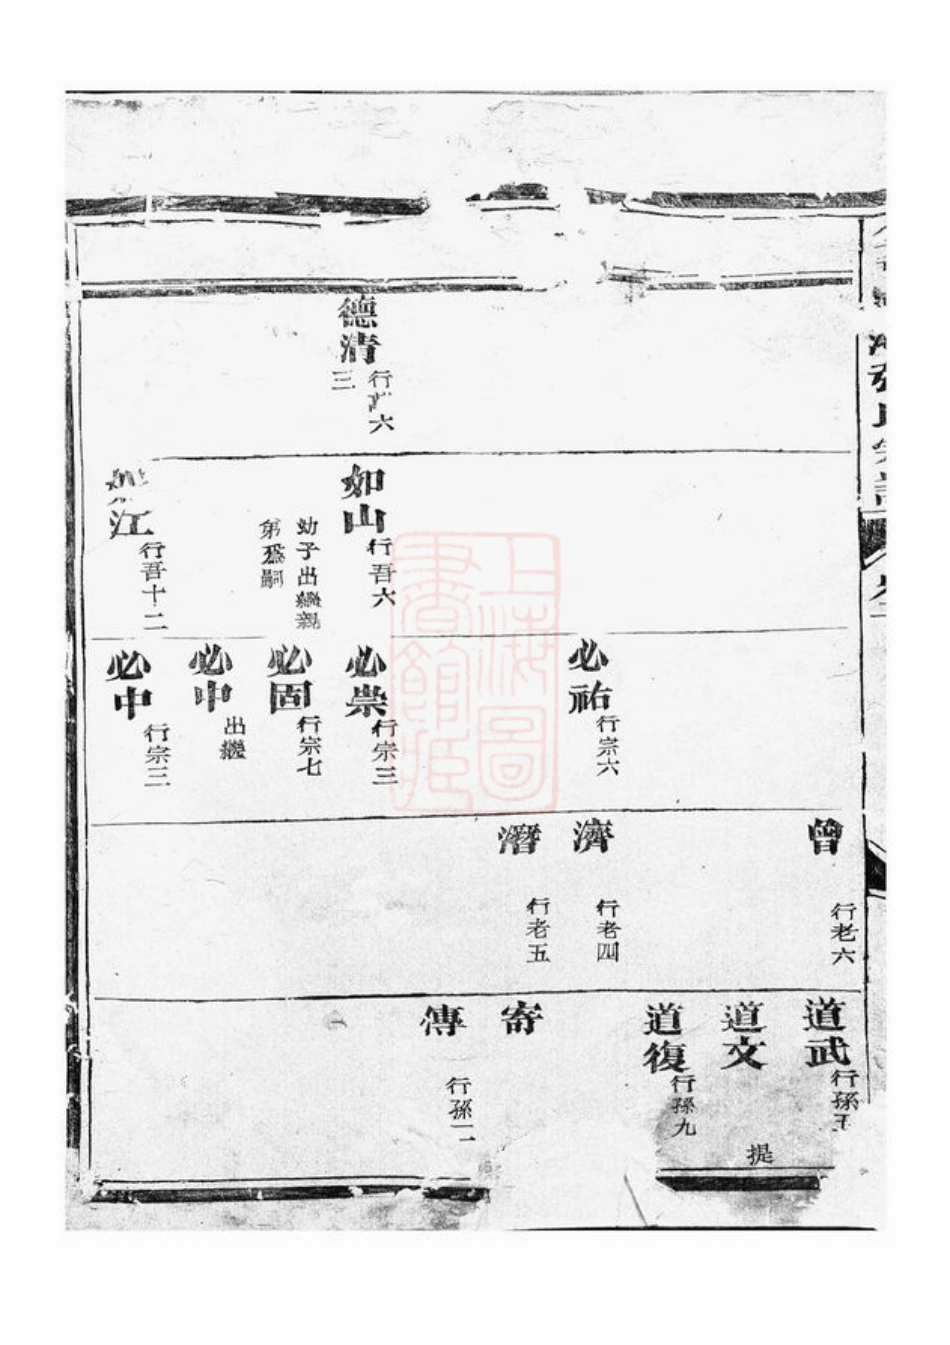 張氏
德清
行
六
三
如山
行吾六
幼子出繼親
第爲嗣
如江
行吾十二
必祐
行宗六
必崇
行宗三
必固
行宗七
必中
出繼
必中
行宗三
曾
行老六
濟
行老四
潛
行老五
道武
行孫五
道文
提
道復
行孫九
寄
傳
行孫二
上海圖
書館